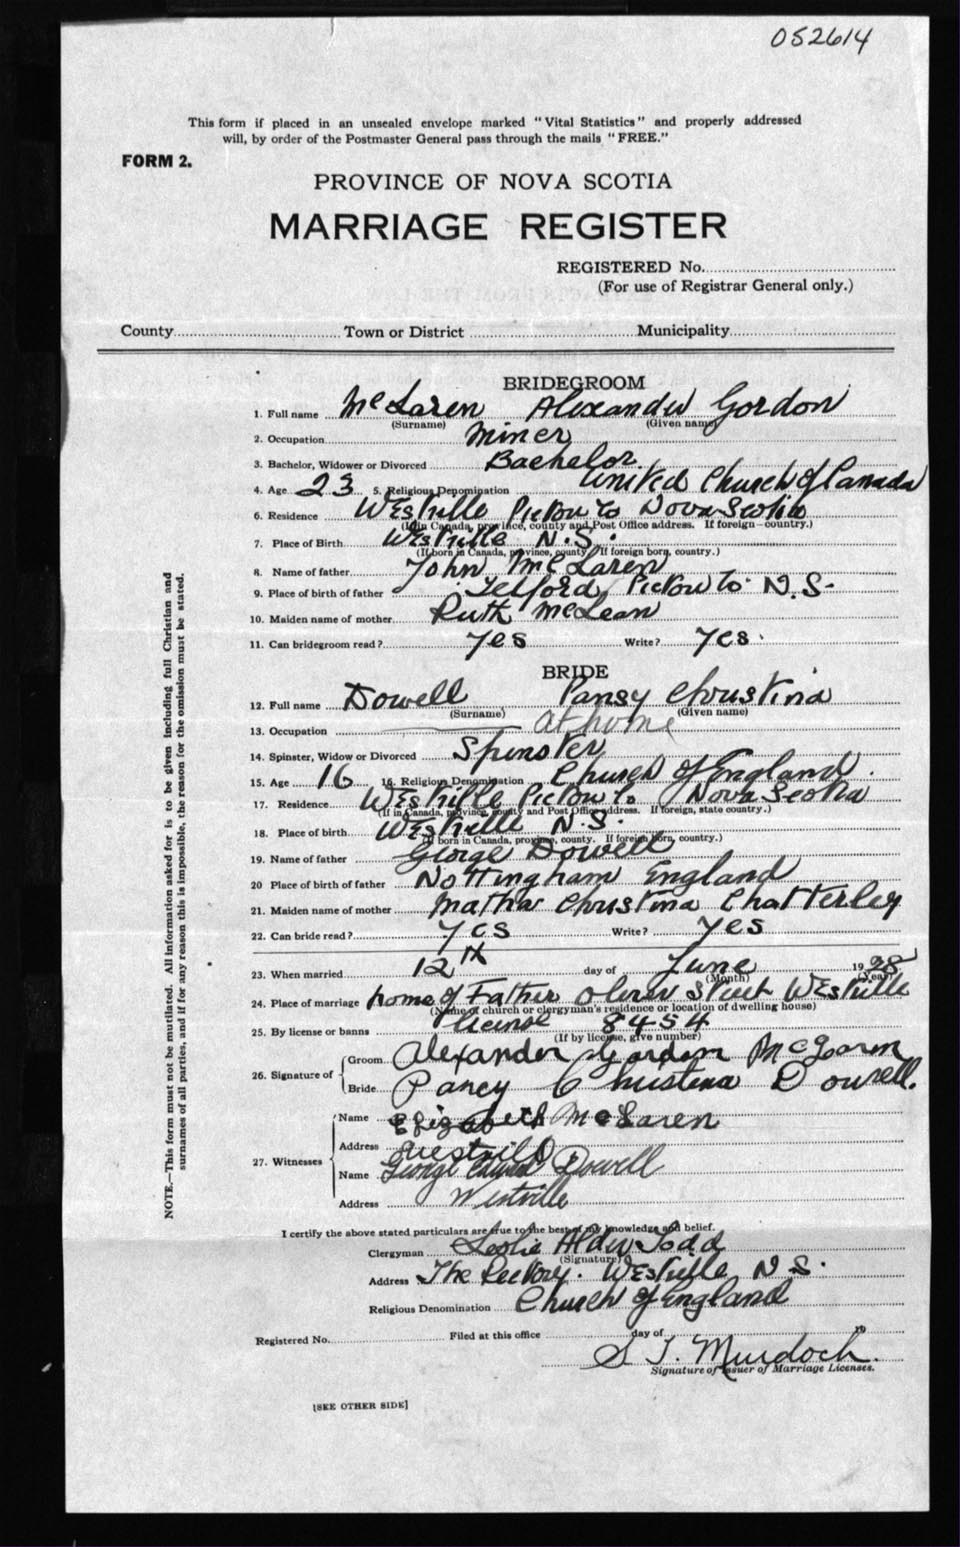 052614
This form if placed in an unsealed envelope marked "Vital Statistics" and properly addressed
will, by order of the Postmaster General pass through the mails "FREE."
FORM 2.
PROVINCE OF NOVA SCOTIA
MARRIAGE REGISTER
REGISTERED No.
(For use of Registrar General only.)
County Town or District Municipality
BRIDEGROOM
1. Full name McLaren Alexander Gordon
(Surname) (Given name)
2. Occupation Miner
3. Bachelor, Widower or Divorced Bachelor
4. Age 23 5. Religious Denomination United Church of Canada
6. Residence Westville Pictou Co Nova Scotia
(If in Canada, province, county and Post Office address. If foreign—country.)
7. Place of Birth Westville N.S.
(If born in Canada, province, county. If foreign born, country.)
8. Name of father John McLaren
9. Place of birth of father Telford Pictou Co N.S.
10. Maiden name of mother Ruth McLean
11. Can bridegroom read? Yes Write? Yes.
BRIDE
12. Full name Dowell Pansy Christina
(Surname) (Given name)
13. Occupation at home
14. Spinster, Widow or Divorced Spinster
15. Age 16 16. Religious Denomination Church of England.
17. Residence Westville Pictou Co Nova Scotia
(If in Canada, province, county and Post Office address. If foreign, state country.)
18. Place of birth Westville N.S.
(If born in Canada, province, county. If foreign born, country.)
19. Name of father George Dowell
20 Place of birth of father Nottingham England
21. Maiden name of mother Christina Chatterley
22. Can bride read? Yes Write? Yes
23. When married 12th day of June 1928
(Month) (Year)
24. Place of marriage home of Father Oliver Street Westville
(Name of church or clergyman's residence or location of dwelling house)
25. By license or banns license 8454
(If by license, give number)
26. Signature of Groom Alexander Gordon McLaren
Bride Pancy Christena Dowell.
27. Witnesses Name Elizabeth McLaren
Address Westville
Name George Edward Dowell
Address Westville
I certify the above stated particulars are true to the best of my knowledge and belief.
Clergyman Leslie Alder Todd
(Signature)
Address The Rectory. Westville N S.
Religious Denomination Church of England
Registered No. Filed at this office day of 19
S T. Murdoch.
Signature of Issuer of Marriage Licenses.
[SEE OTHER SIDE]
NOTE.—This form must not be mutilated. All information asked for is to be given including full Christian and
surnames of all parties, and if for any reason this is impossible, the reason for the omission must be stated.